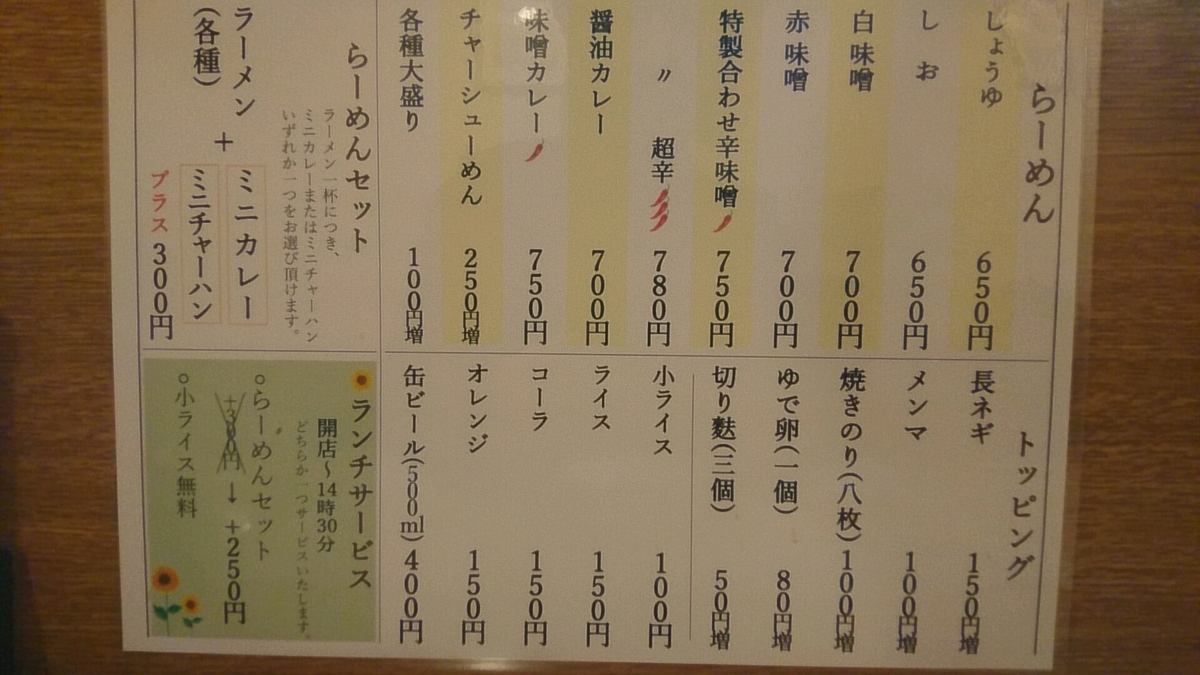 らーめん
しょうゆ 650円
しお 650円
白味噌 700円
赤味噌 700円
特製合わせ辛味噌 750円
〃 超辛 780円
醤油カレー 700円
味噌カレー 750円
チャーシューめん 250円増
各種大盛り 100円増
らーめんセット
ラーメン一杯につき、
ミニカレーまたはミニチャーハン
いずれか一つをお選び頂けます。
ラーメン
(各種)
+
ミニカレー
ミニチャーハン
プラス300円
トッピング
長ネギ 150円増
メンマ 100円増
焼きのり(八枚) 100円増
ゆで卵(一個) 80円増
切り麩(三個) 50円増
小ライス 100円
ライス 150円
コーラ 150円
オレンジ 150円
缶ビール(500ml) 400円
ランチサービス
開店~14時30分
どちらか一つサービスいたします。
○らーめんセット
+300円→+250円
○小ライス無料